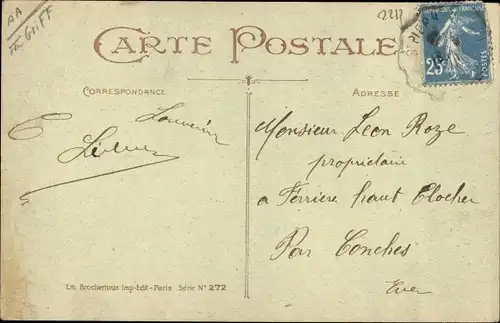 AA
2217
CARTE POSTALE
RÉPUBLIQUE FRANÇAISE
25c
POSTES
CORRESPONDANCE
ADRESSE
Souvenir
Monsieur Leon Roze
propriétaire
a Ferriere haut Clocher
Par Conches
Eure
Em. Brocherioux Imp-Edit-Paris Série N° 272